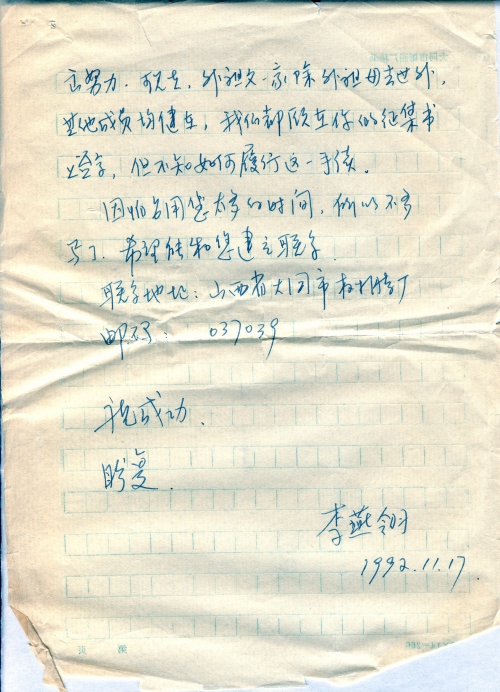 言努力。现在，外祖父一家除外祖母去世外，
其他成员均健在，我们都愿在你的征集书
上签字，但不知如何履行这一手续。
因怕占用您太多的时间，所以不多
写了。希望能和您建立联系。
联系地址：山西省大同市
邮码：037039
祝成功。
盼复。
李燕翎
1992.11.17